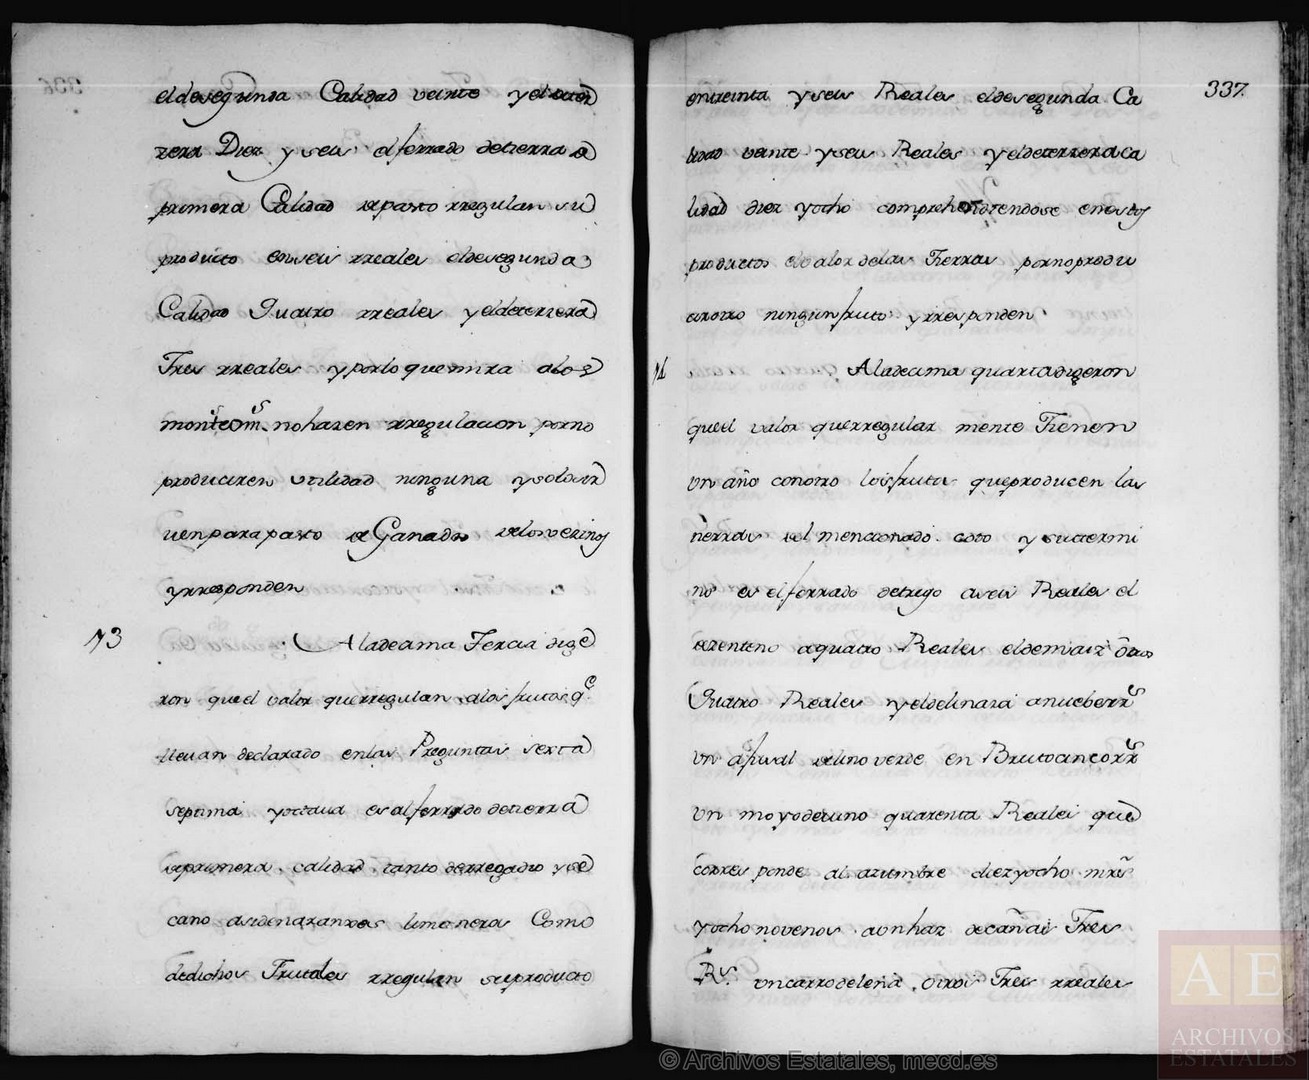 eldesegunda Calidad veinte yelde ter
zera Diez yseis elferrado detierra de
primera Calidad depasto rregulan su
producto enseis rreales eldesegunda
Calidad Quatro rreales yeldeterzera
Tres rreales yporloquemira alos
montes nohazen rregulacion porno
produciren utilidad ninguna ysolosir
uenparapasto deGanados delosvezinos
yrresponden
13 Aladezima Terzia dige
ron queel valor querregulan alosfrutos q.e
lleuan declarado enlas Preguntas sexta
septima yoctaua esalferrado detierra
deprimera calidad tanto derregadio yse
cano asidenaranxos limoneros Como
dedichos Frutales rregulan suproducto
337.
entreinta yseis Reales eldesegunda Ca
lidad veinte yseis Reales yeldeterzeraca
lidad diez yocho comprehendiendose enestos
productos elvalor delas Tierras pornoprodu
zirotro ningunfruto yrresponden
14 Aladezima quartadigeron
queel valor querregularmente Tienen
un año conotro losfrutos queproducen las
tierras del mencionado coto ysutermi
no es elferrado detrigo aseis Reales el
dezenteno aquatro Reales eldemaiz otros
Quatro Reales yeldelinaza anueberrs
un afusal delino verde en Brutoancorrs
un moyodeuino quarenta Reales que
corresponde al azumbre diezyocho mrs
yocho novenos aunhaz decañas Tres
Rs. uncarrodeleña otros Tres rreales
© Archivos Estatales, mecd.es
AE
ARCHIVOS
ESTATALES